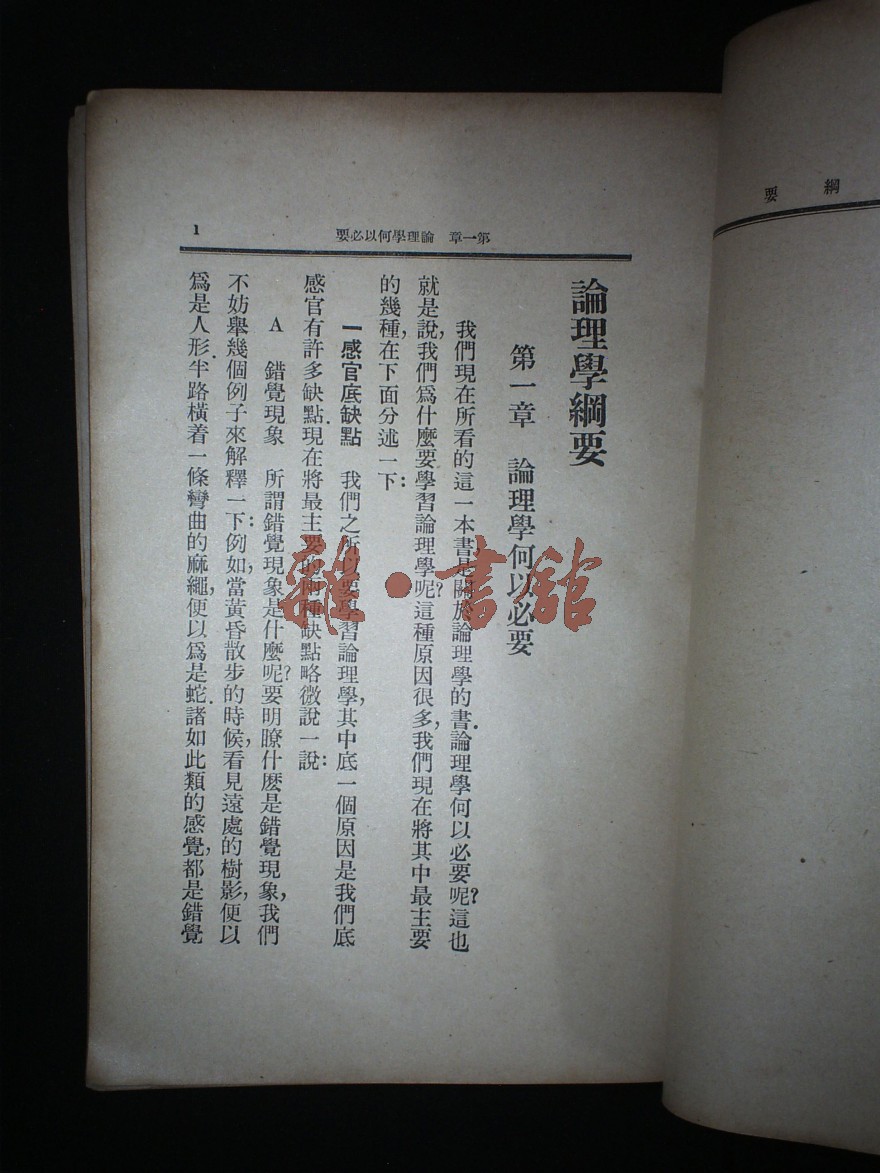 綱要
1
第一章 論理學何以必要
論理學綱要
第一章 論理學何以必要
我們現在所看的這一本書,是關於論理學的書.論理學何以必要呢?這也
就是說,我們爲什麼要學習論理學呢?這種原因很多,我們現在將其中最主要
的幾種,在下面分述一下:
一感官底缺點 我們之所以要學習論理學,其中底一個原因是我們底
感官有許多缺點.現在將最主要的兩種缺點略微說一說:
A 錯覺現象 所謂錯覺現象是什麼呢?要明瞭什麽是錯覺現象,我們
不妨舉幾個例子來解釋一下:例如,當黃昏散步的時候,看見遠處的樹影,便以
爲是人形.半路橫着一條彎曲的麻繩,便以爲是蛇.諸如此類的感覺,都是錯覺
雜·書館